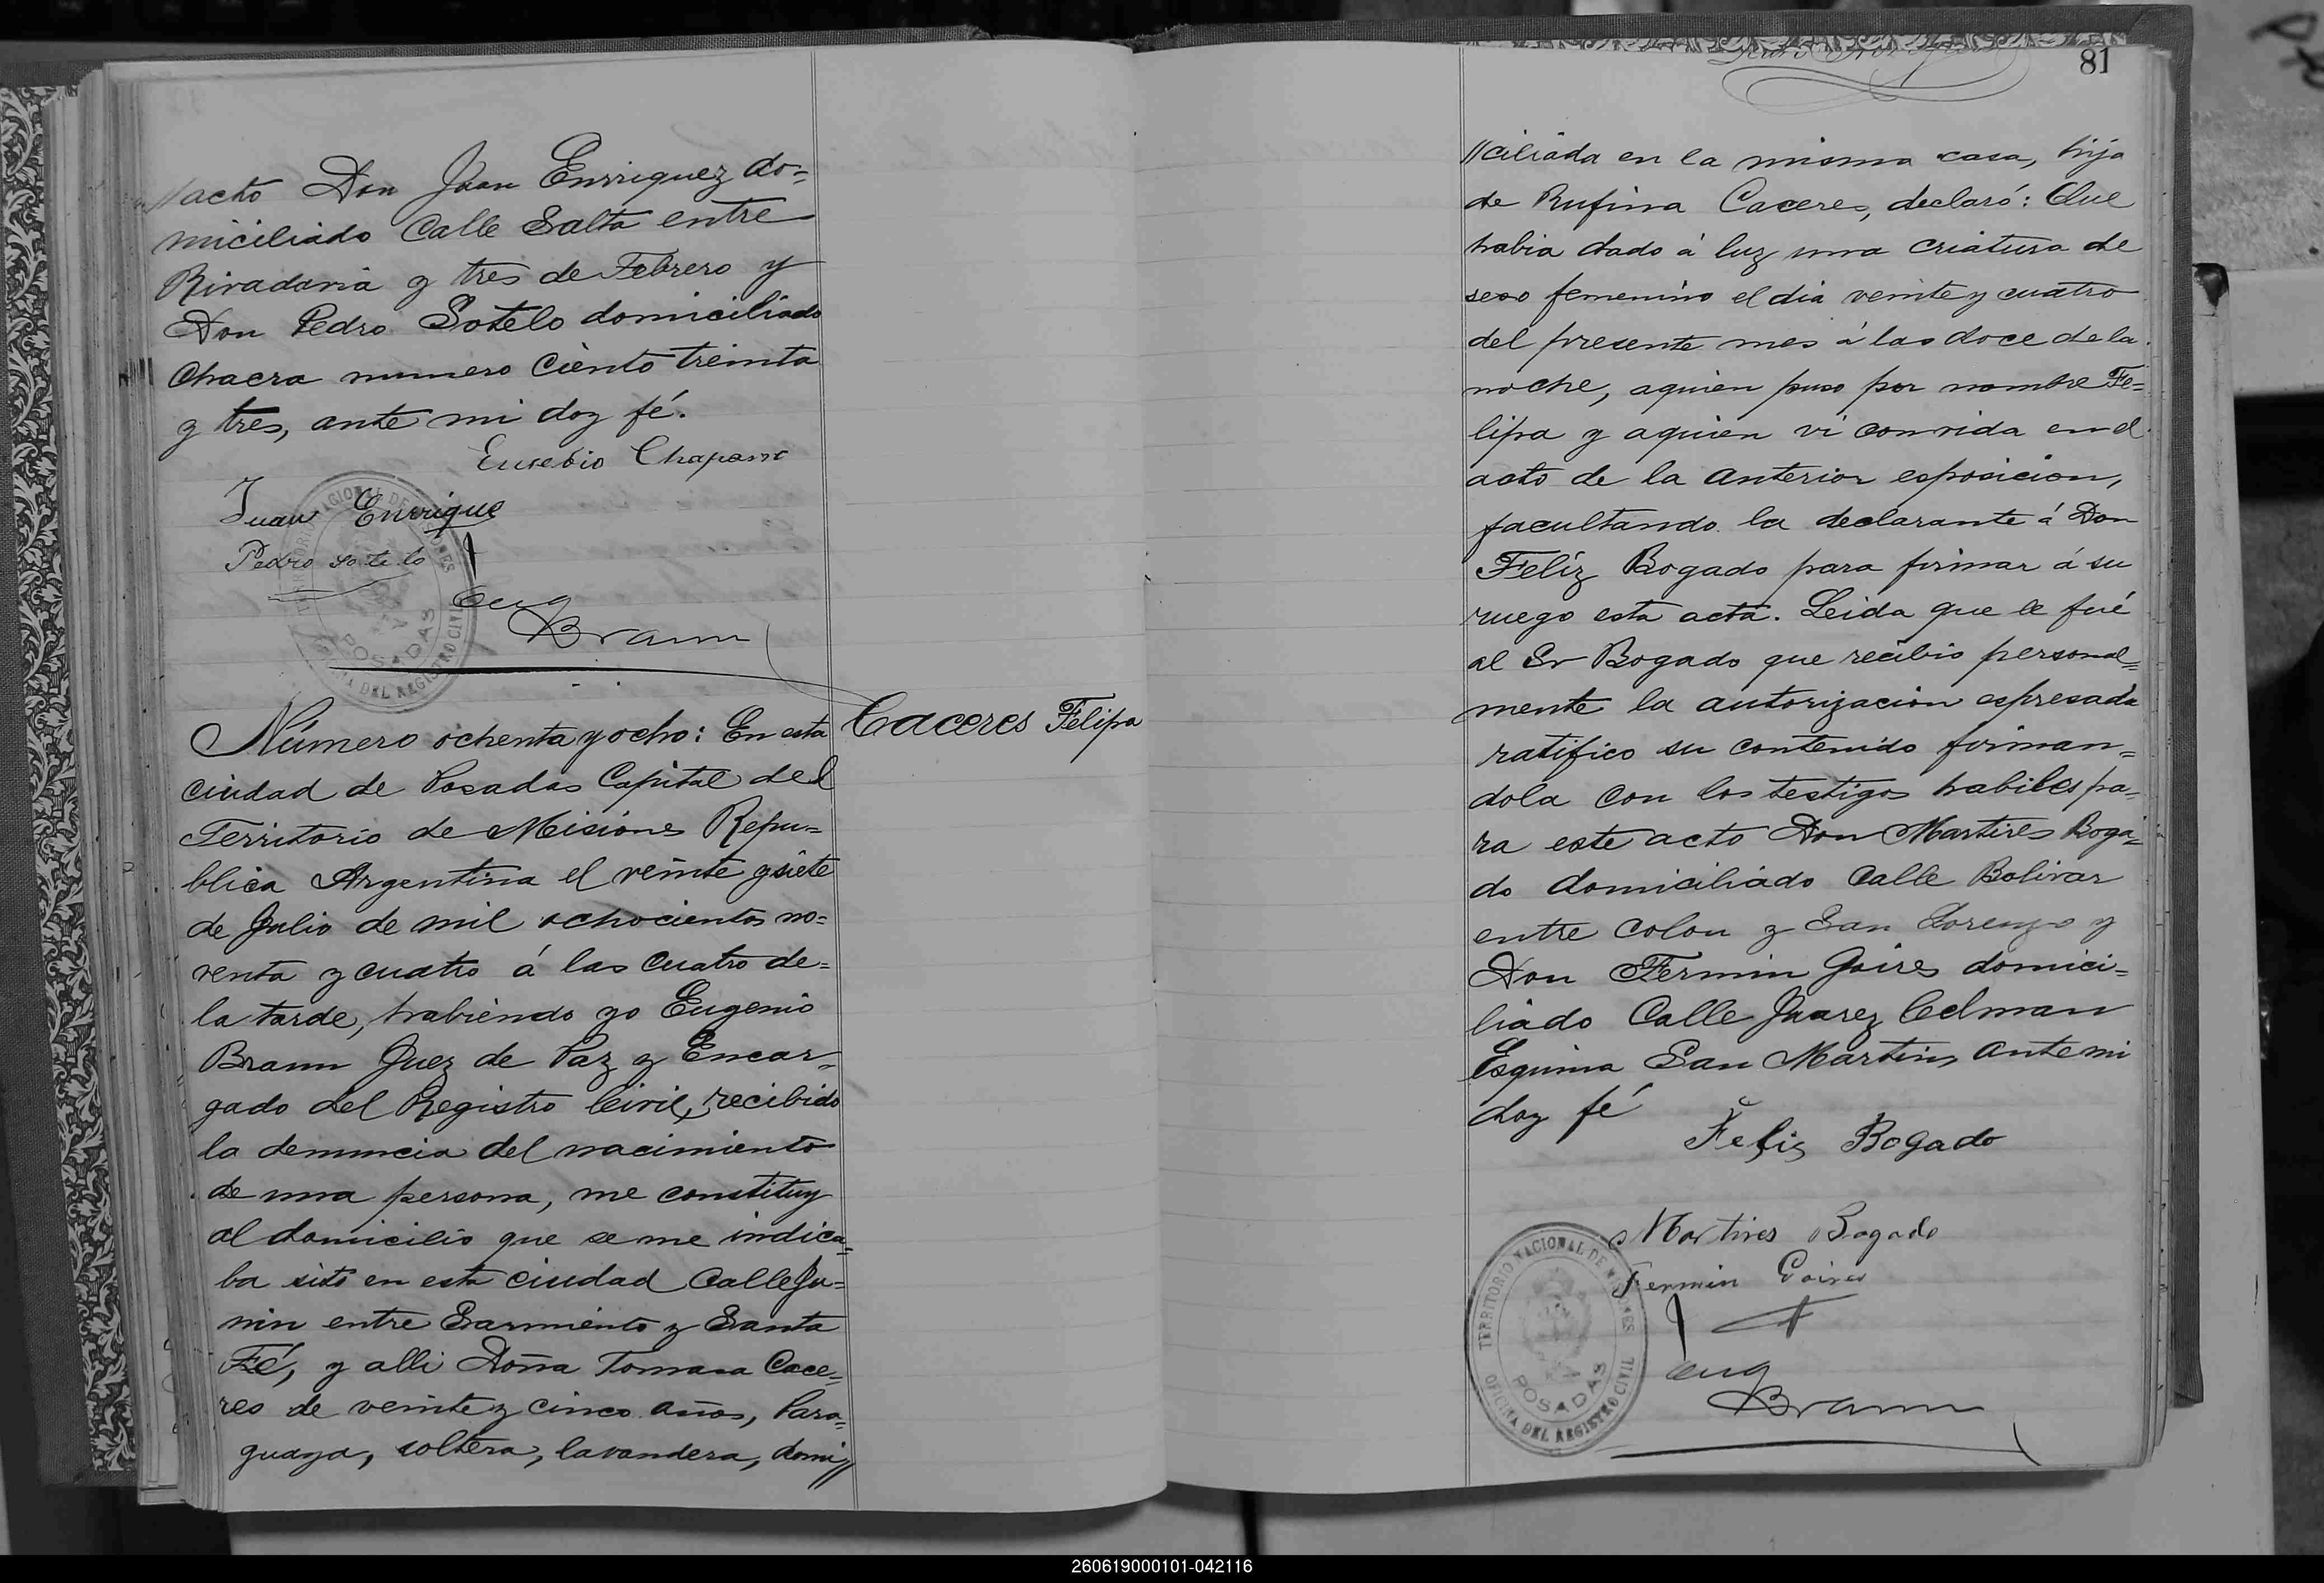 //acto Don Juan Enrriquez do=
miciliado Calle Salta entre
Rivadavia y tres de Febrero y
Don Pedro Sotelo domiciliado
Chacra numero Ciento treinta
y tres, ante mi doy fé.
Eusebio Chaparro
Juan Enrrique
Pedro Sotelo
Eug
Braun
TERRITORIO NACIONAL DE MISIONES
POSADAS
OFICINA DEL REGISTRO CIVIL
Número ochenta y ocho: En esta
Caceres Felipa
ciudad de Posadas Capital del
Territorio de Misiones Repu=
blica Argentina el veinte y siete
de Julio de mil ochocientos no=
venta y cuatro á las cuatro de=
la tarde, habiendo yo Eugenio
Braun Juez de Paz y Encar=
gado del Registro Civil, recibido
la denuncia del nacimiento
de una persona, me constituy
al domicilio que se me indica=
ba sito en esta ciudad Calle Ju=
nin entre Sarmiento y Santa
Fé, y alli Doña Tomasa Cace=
res de veinte y cinco años, Para=
guaya, soltera, lavandera, domi//
81
//ciliada en la misma casa, hija
de Rufina Caceres, declaró: Que
habia dado á luz una criatura de
sexo femenino el dia veinte y cuatro
del presente mes á las doce de la
noche, aquien puso por nombre Fe=
lipa y aquien vi con vida en el
acto de la anterior esposicion,
facultando la declarante á Don
Felíz Bogado para firmar á su
ruego esta acta. Leida que le fué
al Sr Bogado que recibio personal=
mente la autorizacion espresada
ratifico su contenido firman=
dola con los testigos habiles pa=
ra este acto Don Martires Boga=
do domiciliado Calle Bolivar
entre Colon y San Lorenzo y
Don Fermin Goires domici=
liado Calle Juarez Celman
Esquina San Martin, ante mi
doy fé
Felis Bogado
Martires Bogado
Fermin Goires
Eug
Braun
TERRITORIO NACIONAL DE MISIONES
POSADAS
OFICINA DEL REGISTRO CIVIL
260619000101-042116